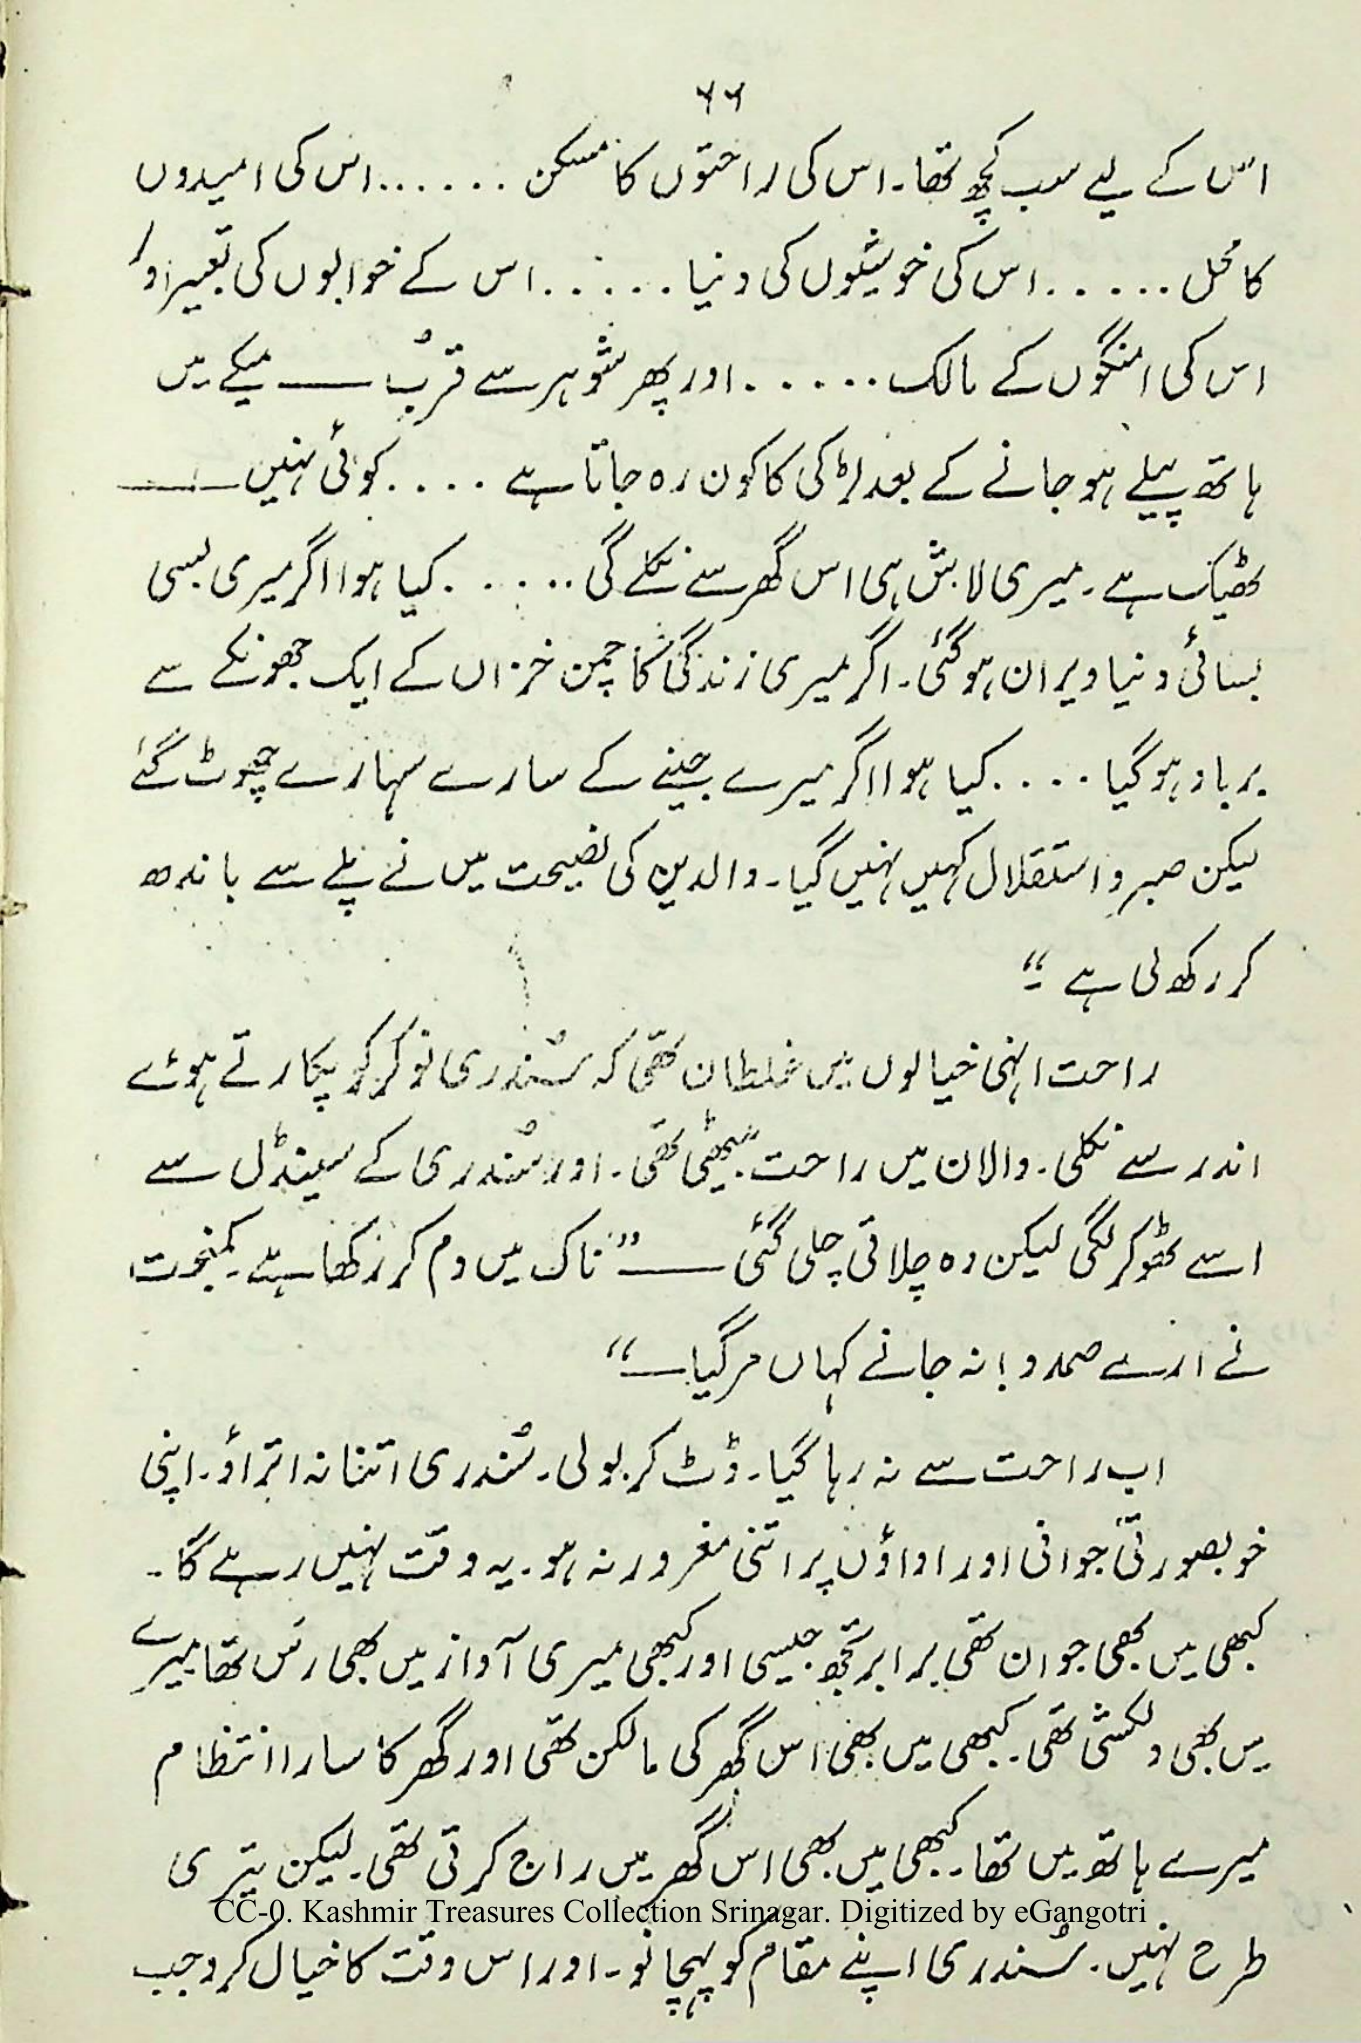 ۶۶
اس کے لیے سب کچھ تھا۔ اس کی راحتوں کا مسکن ...... اس کی امیدوں
کا محل ..... اس کی خوشیوں کی دنیا ..... اس کے خوابوں کی تعبیر اور
اس کی امنگوں کے مالک ..... اور پھر شوہر سے قربُ —— میکے میں
ہاتھ پیلے ہو جانے کے بعد لڑکی کا کون رہ جاتا ہے .... کوئی نہیں ——
ٹھیک ہے۔ میری لاش ہی اس گھر سے نکلے گی ..... کیا ہوا اگر میری بسی
بسائی دنیا ویران ہو گئی۔ اگر میری زندگی کا چمن خزاں کے ایک جھونکے سے
برباد ہو گیا .... کیا ہوا اگر میرے جینے کے سارے سہارے چھوٹ گئے
لیکن صبر و استقلال کہیں نہیں گیا۔ والدین کی نصیحت میں نے پلے سے باندھ
کر رکھ لی ہے ۔“
راحت انہی خیالوں میں غلطان تھی کہ سُندری نوکر کو پکارتے ہوئے
اندر سے نکلی۔ والان میں راحت بیٹھی تھی۔ اور سُندری کے سینڈل سے
اسے ٹھوکر لگی لیکن وہ چلاتی چلی گئی —— ”ناک میں دم کر رکھا ہے۔ کمبخت
نے ارے صمدو! نہ جانے کہاں مر گیا —“
اب راحت سے نہ رہا گیا۔ ڈٹ کر بولی۔ سُندری اتنا نہ اتراؤ۔ اپنی
خوبصورتی، جوانی اور اداؤں پر اتنی مغرور نہ ہو۔ یہ وقت نہیں رہے گا۔
کبھی میں بھی جوان تھی برابر تجھ جیسی اور کبھی میری آواز میں بھی رَس تھا میرے
میں بھی دلکشی تھی۔ کبھی میں بھی اس گھر کی مالکن تھی اور گھر کا سارا انتظام
میرے ہاتھ میں تھا۔ کبھی میں بھی اس گھر میں راج کرتی تھی۔ لیکن تیری
CC-0. Kashmir Treasures Collection Srinagar. Digitized by eGangotri
طرح نہیں۔ سُندری اپنے مقام کو پہچانو۔ اور اس وقت کا خیال کرو جب